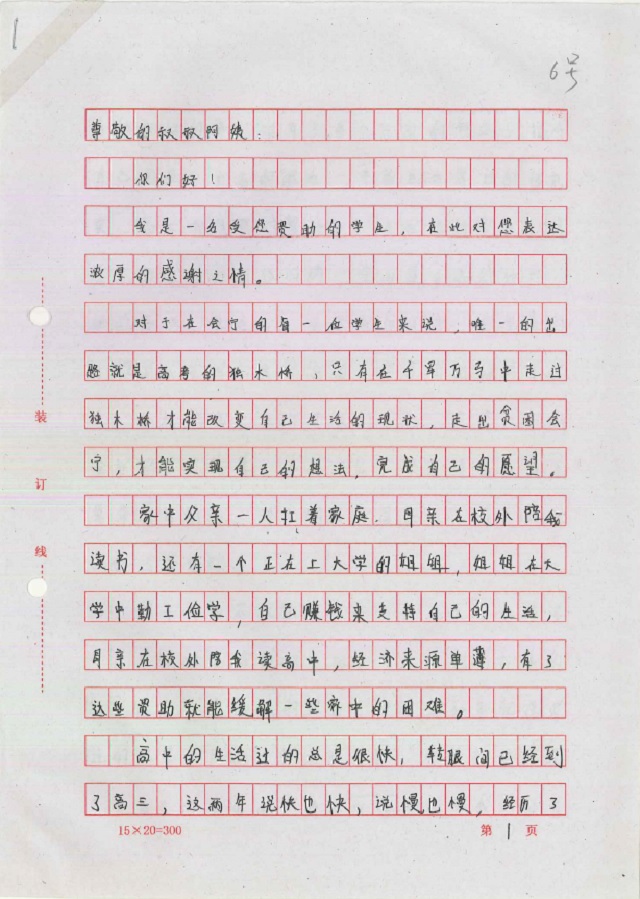 1
6号
尊敬的叔叔阿姨:
你们好!
我是一名受您资助的学生,在此对您表达
浓厚的感谢之情。
对于在会宁的每一位学生来说,唯一的出
路就是高考的独木桥,只有在千军万马中走过
独木桥才能改变自己生活的现状,走出贫困会
宁,才能实现自己的想法,完成自己的愿望。
家中父亲一人扛着家庭,母亲在校外陪我
读书,还有一个正在上大学的姐姐,姐姐在大
学中勤工俭学,自己赚钱来支持自己的生活,
母亲在校外陪我读高中,经济来源单薄,有了
这些资助就能缓解一些家中的困难。
高中的生活过的总是很快,转眼间已经到
了高三,这两年说快也快,说慢也慢,经历了
装
订
线
15×20=300
第 1 页